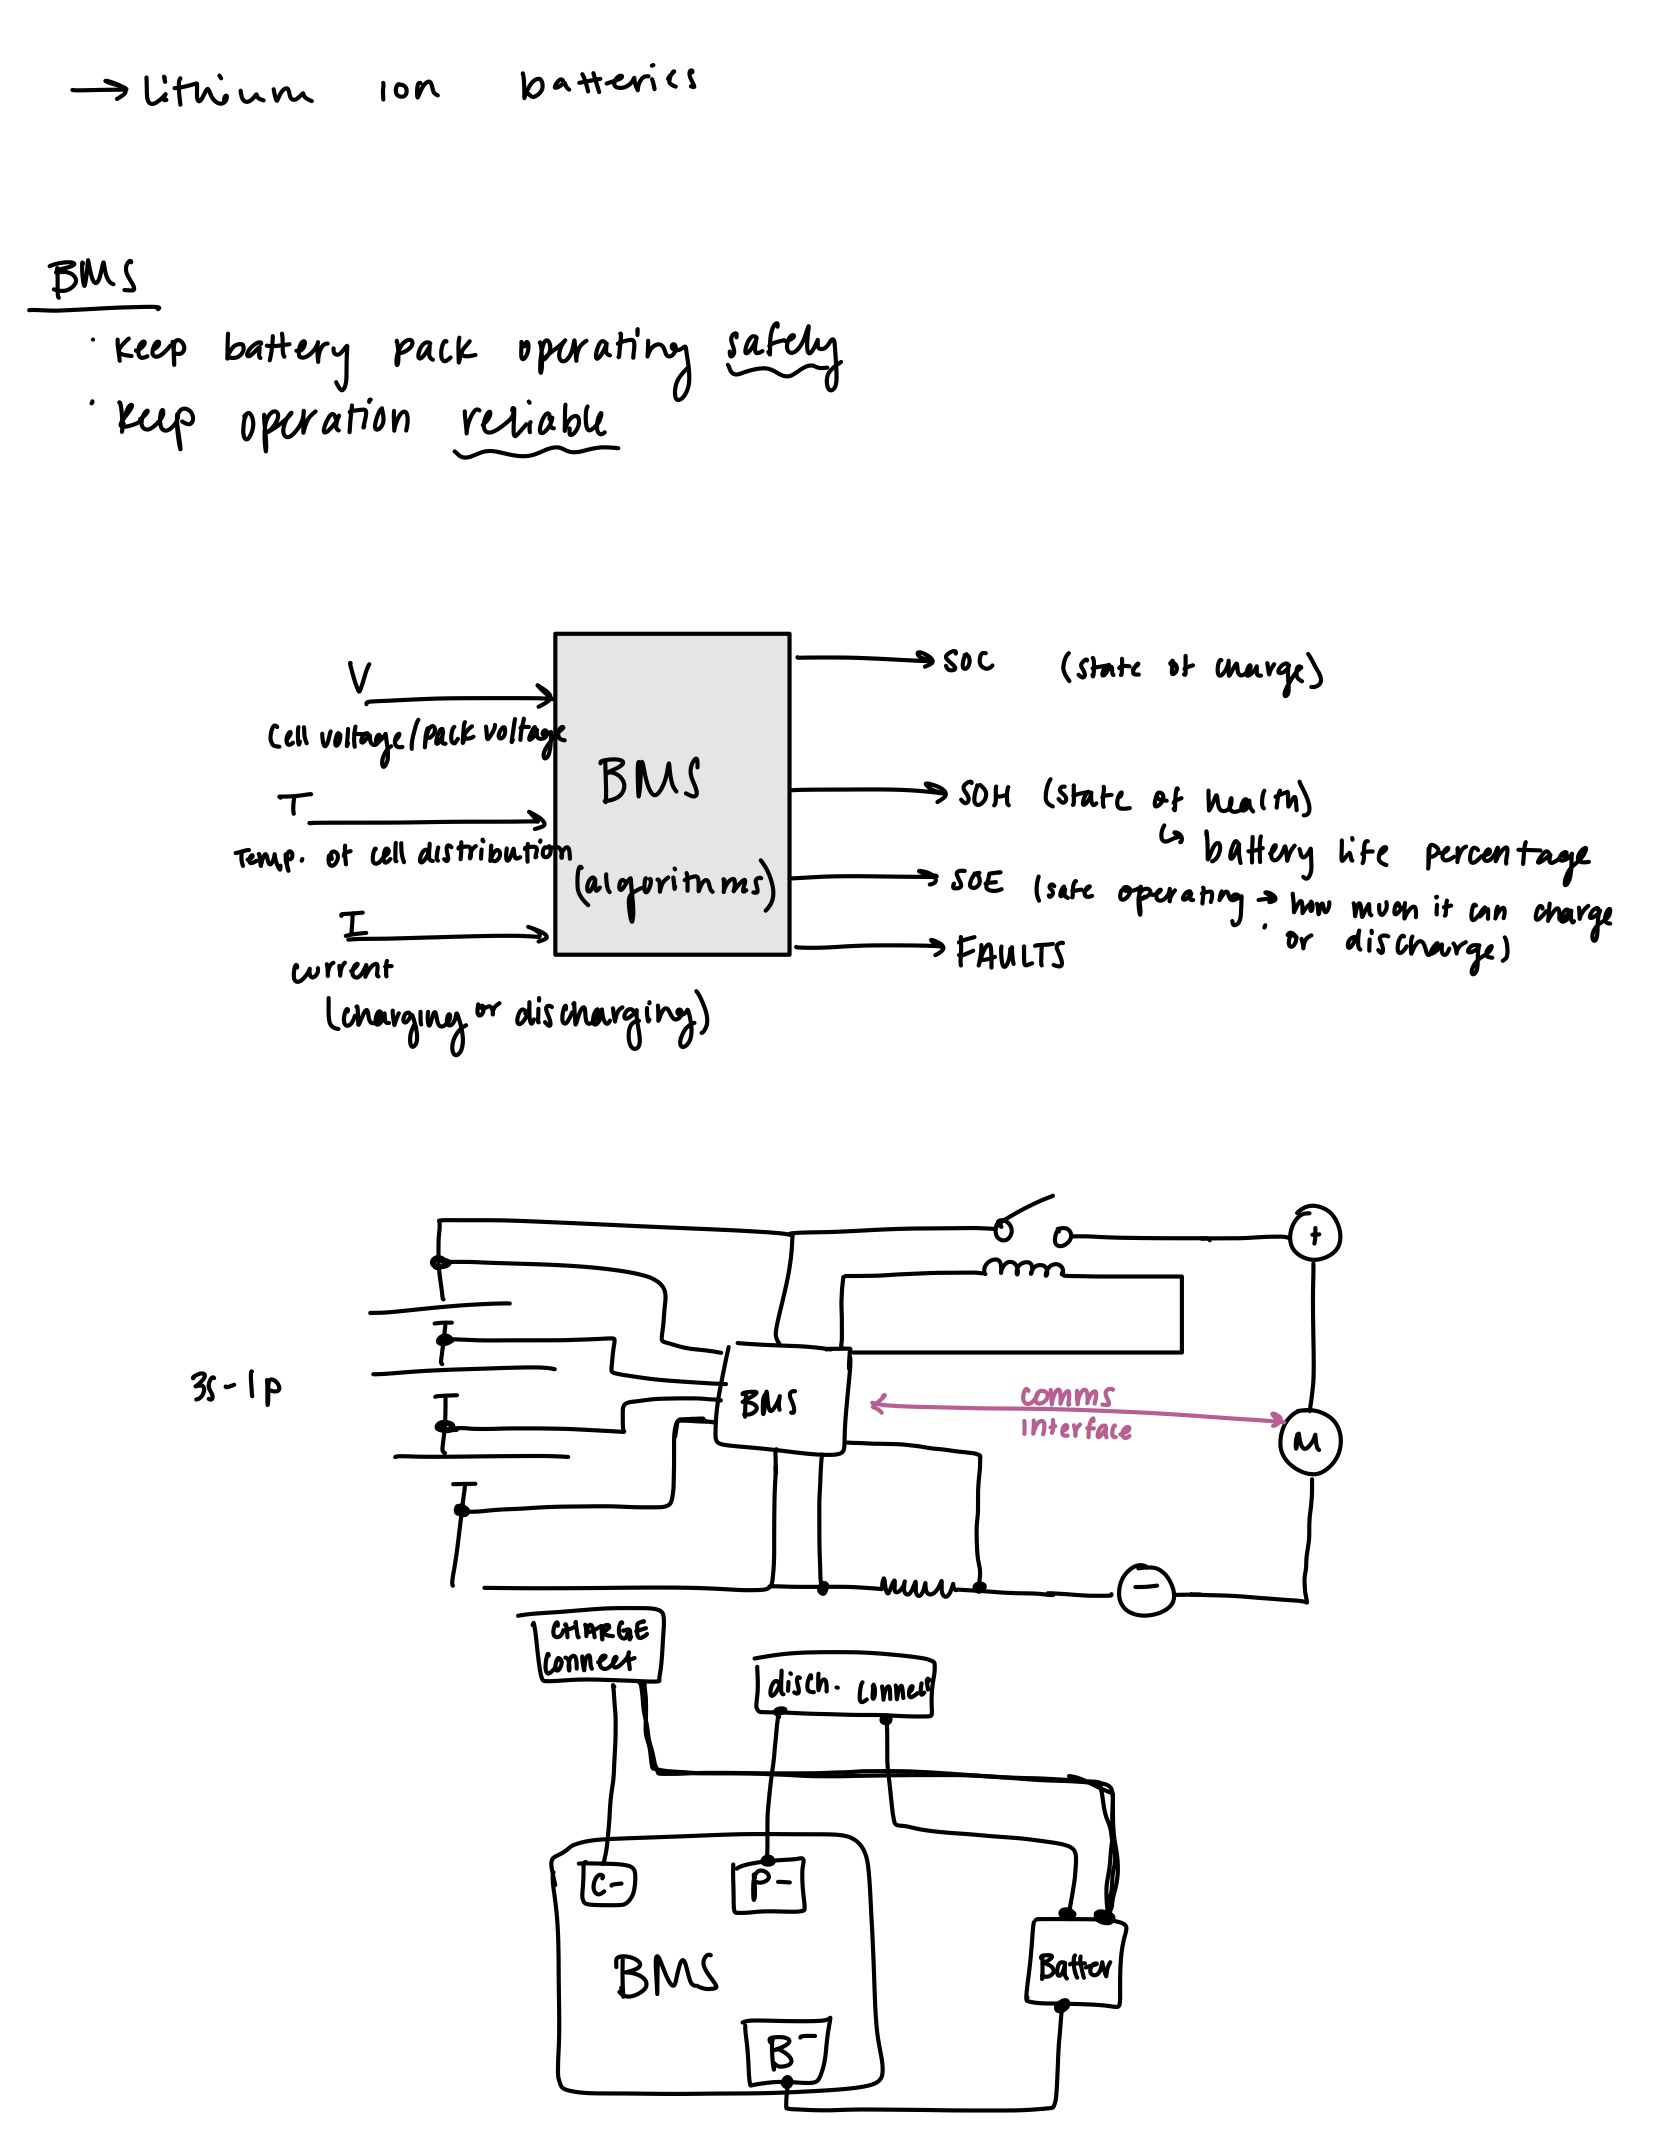 → Lithium ion batteries
BMS
· Keep battery pack operating safely
· Keep operation reliable
V
Cell voltage/pack voltage
T
Temp. of cell distribution
I
current
(charging or discharging)
BMS
(algorithms)
SOC (state of charge)
SOH (state of health)
↳ battery life percentage
SOE (safe operating → how much it can charge
or discharge)
FAULTS
3s-1p
BMS
+
comms
interface
M
−
CHARGE
connect
disch. connect
C-
P-
BMS
B-
Batter